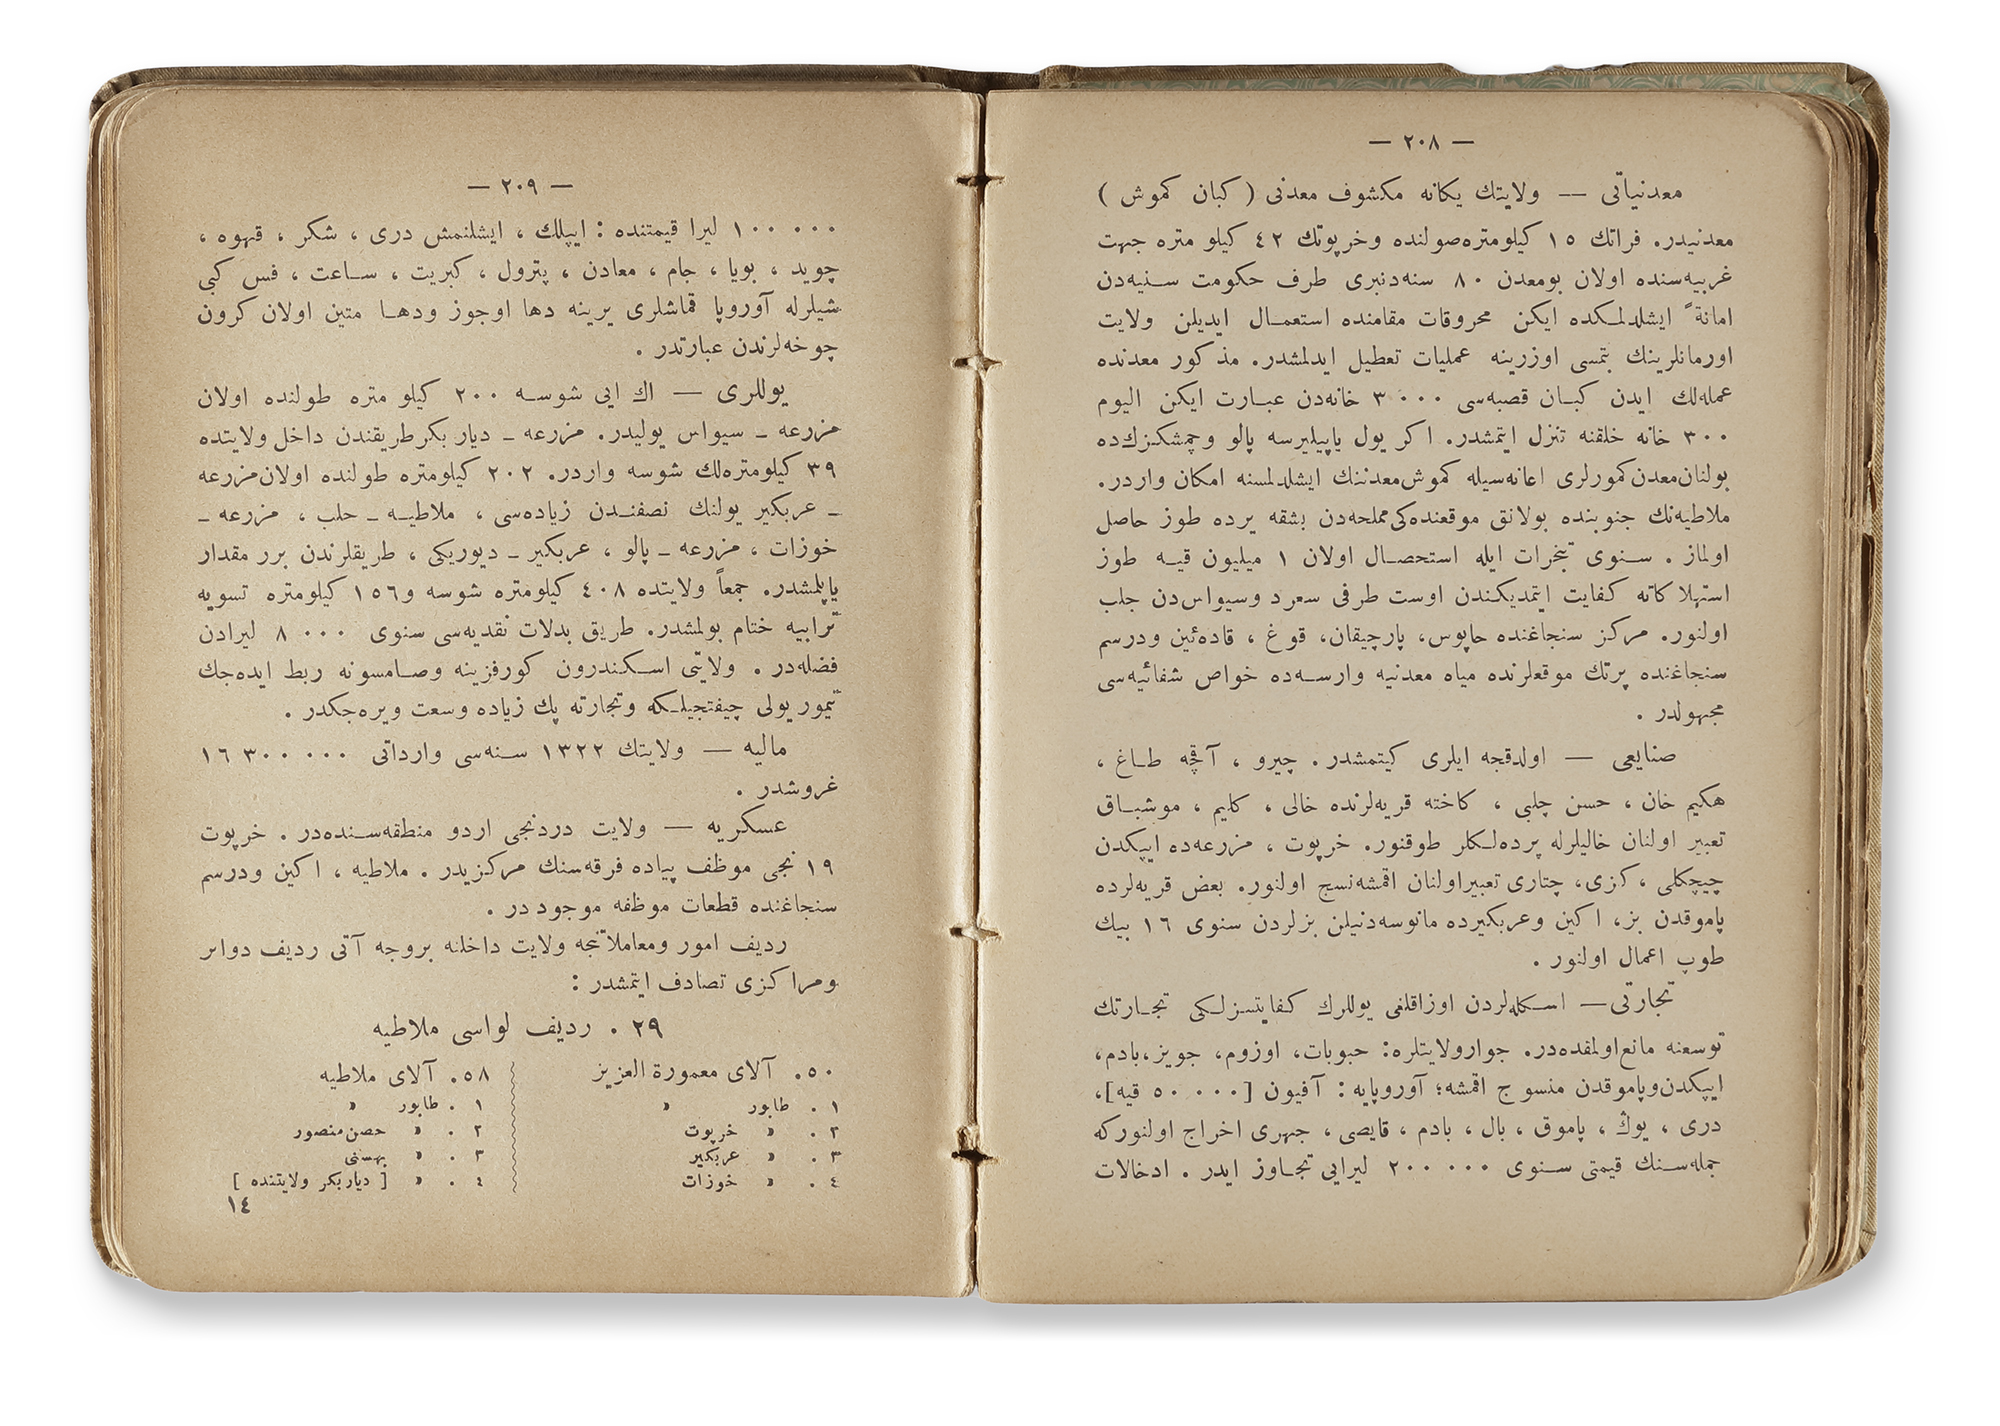 — ٢٠٨ —
معدنیاتی — ولایتك یكانه مكشوف معدنی ( كبان كموش )
معدنیدر. فراتك ١٥ كیلومتره صولنده وخرپوتك ٤٢ كیلو متره جهت
غربیه‌سنده اولان بومعدن ٨٠ سنه‌دنبری طرف حكومت سنیه‌دن
امانةً ایشلدلمكده ایكن محروقات مقامنده استعمال ایدیلن ولایت
اورمانلرینك بتمسی اوزرینه عملیات تعطیل ایدلمشدر. مذكور معدنده
عمله‌لك ایدن كبان قصبه‌سی ٣٠٠٠ خانه‌دن عبارت ایكن الیوم
٣٠٠ خانه خلقنه تنزل ایتمشدر. اكر یول یاپیلیرسه پالو وچمشكزك‌ده
بولنان معدن كمورلری اعانه‌سیله كموش معدننك ایشلدلمسنه امكان واردر.
ملاطیه‌نك جنوبنده بولانق موقعنده‌كی مملحه‌دن بشقه یرده طوز حاصل
اولماز . سنوی تبخرات ایله استحصال اولان ١ میلیون قیه طوز
استهلاكاته كفایت ایتمدیكندن اوست طرفی سعرد وسیواس‌دن جلب
اولنور. مركز سنجاغنده حاپوس، پارچیقان، قوغ ، قاده‌ئین ودرسم
سنجاغنده پرتك موقعلرنده میاه معدنیه وارسه‌ده خواص شفائیه‌سی
مجهولدر .
صنایعی — اولدقجه ایلری كیتمشدر. چیرو ، آقچه طاغ ،
هكیم خان ، حسن چلبی ، كاخته قریه‌لرنده خالی ، كلیم ، موشباق
تعبیر اولنان خالیلرله پرده‌لكلر طوقنور. خرپوت ، مزرعه‌ده ایپكدن
چیچكلی ، كزی، چتاری تعبیر اولنان اقمشه نسج اولنور. بعض قریه‌لرده
پاموقدن بز، اكین وعربكیرده مانوسه دنیلن بزلردن سنوی ١٦ بیك
طوپ اعمال اولنور .
تجارتی — اسكله‌لردن اوزاقلغی یوللرك كفایتسزلكی تجارتك
توسعنه مانع اولمقده‌در. جوار ولایتلره: حبوبات، اوزوم، جویز، بادم،
ایپكدن وپاموقدن منسوج اقمشه؛ آوروپایه : آفیون [٥٠٠٠٠ قیه]،
دری ، یوڭ ، پاموق ، بال ، بادم ، قایصی ، جهری اخراج اولنوركه
جمله‌سنك قیمتی سنوی ٢٠٠٠٠٠ لیرایی تجاوز ایدر . ادخالات
— ٢٠٩ —
١٠٠٠٠٠ لیرا قیمتنده : ایپلك ، ایشلنمش دری ، شكر ، قهوه ،
چوید ، بویا ، جام ، معادن ، پترول ، كبریت ، ساعت ، فس كبی
شیلرله آوروپا قماشلری یرینه دها اوجوز ودها متین اولان كرون
چوخه‌لرندن عبارتدر .
یوللری — اك ایی شوسه ٢٠٠ كیلو متره طولنده اولان
مزرعه - سیواس یولیدر. مزرعه - دیاربكر طریقندن داخل ولایتده
٣٩ كیلومتره‌لك شوسه واردر. ٢٠٢ كیلومتره طولنده اولان مزرعه
- عربكیر یولنك نصفندن زیاده‌سی ، ملاطیه - حلب ، مزرعه -
خوزات ، مزرعه - پالو ، عربكیر - دیوریكی ، طریقلرندن برر مقدار
یاپلمشدر. جمعاً ولایتده ٤٠٨ كیلومتره شوسه و١٥٦ كیلومتره تسویه
ترابیه ختام بولمشدر. طریق بدلات نقدیه‌سی سنوی ٨٠٠٠ لیرادن
فضله‌در . ولایتی اسكندرون كورفزینه وصامسونه ربط ایده‌جك
تیمور یولی چیفتجیلكه وتجارته پك زیاده وسعت ویره‌جكدر .
مالیه — ولایتك ١٣٢٢ سنه‌سی وارداتی ١٦٣٠٠٠٠٠
غروشدر .
عسكریه — ولایت دردنجی اردو منطقه‌سنده‌در . خرپوت
١٩ نجی موظف پیاده فرقه‌سنك مركزیدر . ملاطیه ، اكین ودرسم
سنجاغنده قطعات موظفه موجوددر .
ردیف امور ومعاملاتجه ولایت داخلنه بروجه آتی ردیف دوائر
ومراكزی تصادف ایتمشدر :
٢٩ . ردیف لواسی ملاطیه
٥٠. آلای معمورة العزیز
١ . طابور »
٢ . » خرپوت
٣ . » عربكیر
٤ . » خوزات
٥٨. آلای ملاطیه
١ . طابور »
٢ . » حصن منصور
٣ . » بهسنی
٤ . » [ دیاربكر ولایتنده ]
١٤